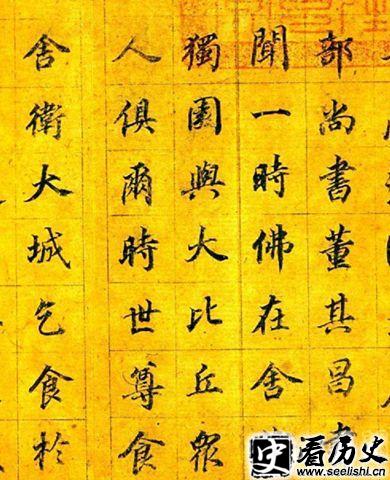 部尚書董其昌
聞一時佛在舍
獨園與大比丘眾
人俱爾時世尊食
舍衛大城乞食於
史看历史
www.seelishi.cn